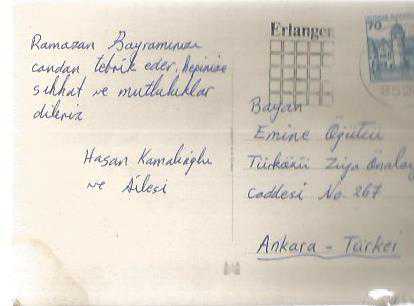 Ramazan Bayramınızı
candan tebrik eder, hepinize
sıhhat ve mutluluklar
dileriz
Hasan Kamalıoğlu
ve Ailesi
Erlangen
70
852
Bayan
Emine Öğütcü
Ziya
Caddesi No. 267
Ankara - Türkei